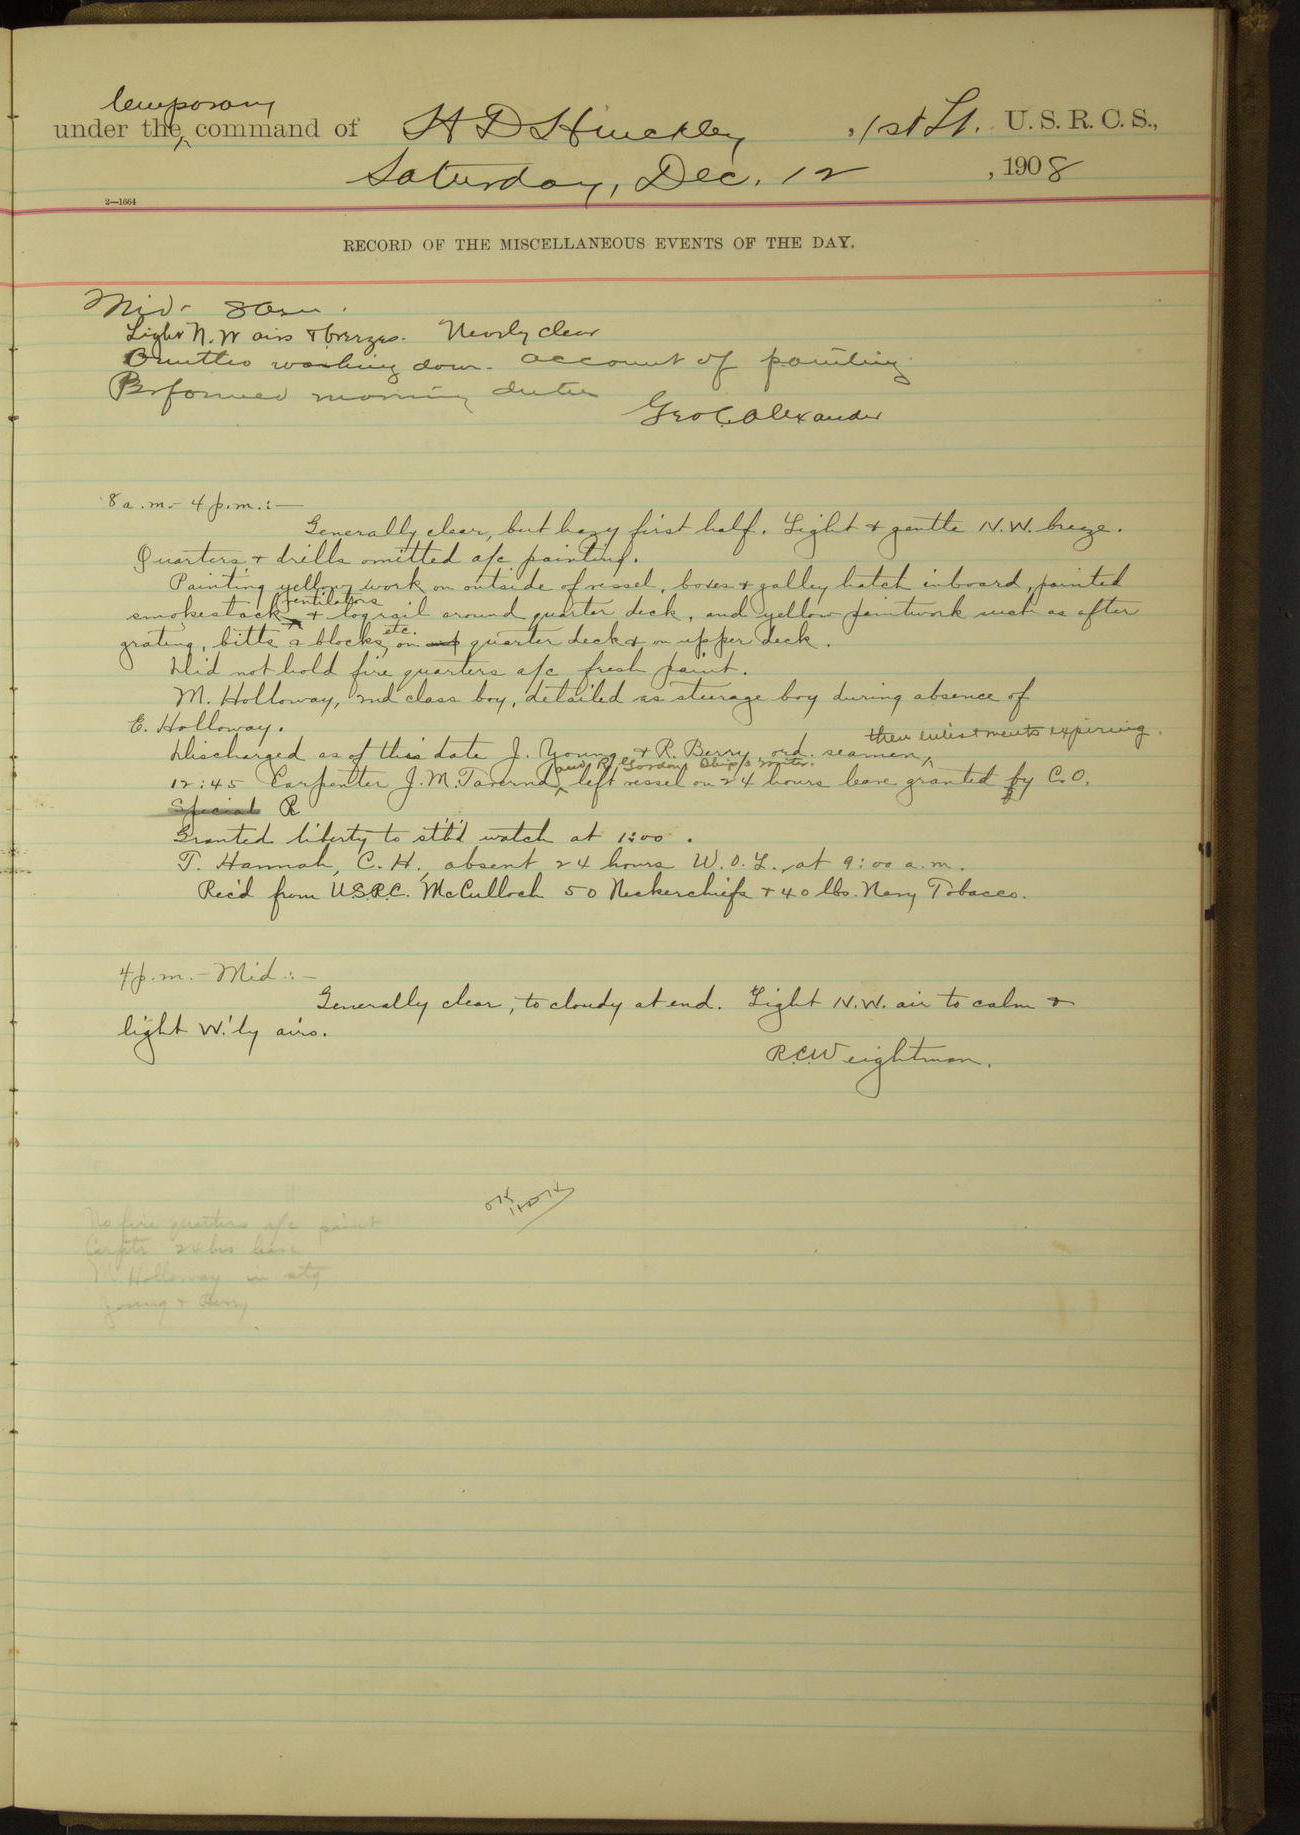 temporary
under the command of H D Hinckley, 1st Lt. U. S. R. C. S.,
Saturday, Dec. 12, 1908
2—1664
RECORD OF THE MISCELLANEOUS EVENTS OF THE DAY.
Mid - 8 am.
Light N.W airs & breezes. Nearly clear
Omitted washing down account of painting
Performed morning duties
Geo C. Alexander
8 a.m. - 4 p.m.:—
Generally clear, but hazy first half. Light & gentle N.W. breeze.
Quarters & drills omitted a/c painting.
Painting yellow work on outside of vessel, boxes & galley hatch inboard, painted
ventilators
smokestack & log rail around quarter deck, and yellow paintwork such as after
etc.
grating, bitts & blocks on quarter deck & on upper deck.
Did not hold fire quarters a/c fresh paint.
M. Holloway, 2nd class boy, detailed as steerage boy during absence of
E. Holloway.
their enlistments expiring.
Discharged as of this date J. Young & R. Berry, ord. seamen
and R. Gordon Ship's Writer.
12:45 Carpenter J. M. Taverna left vessel on 24 hours leave granted by C.O.
Special R
Granted liberty to stb'd watch at 1:00.
T. Hannah, C. H., absent 24 hours W.O.L. at 9:00 a.m.
Rec'd from U.S.R.C. McCulloch 50 Neckerchiefs & 40 lbs. Navy Tobacco.
4 p.m. - Mid.:—
Generally clear, to cloudy at end. Light N.W. air to calm &
light W'ly airs.
R.C. Weightman.
OK
No fire quarters a/c paint
Carptr 24 hrs leave
M. Holloway in stg
Young & Berry